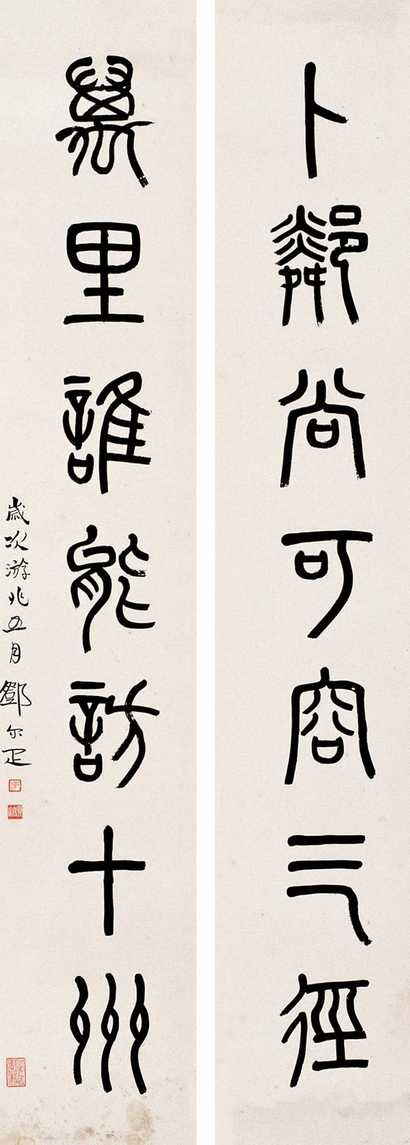 卜鄰尚可容三徑
萬里誰能訪十州
歲次游兆五月鄧尔疋